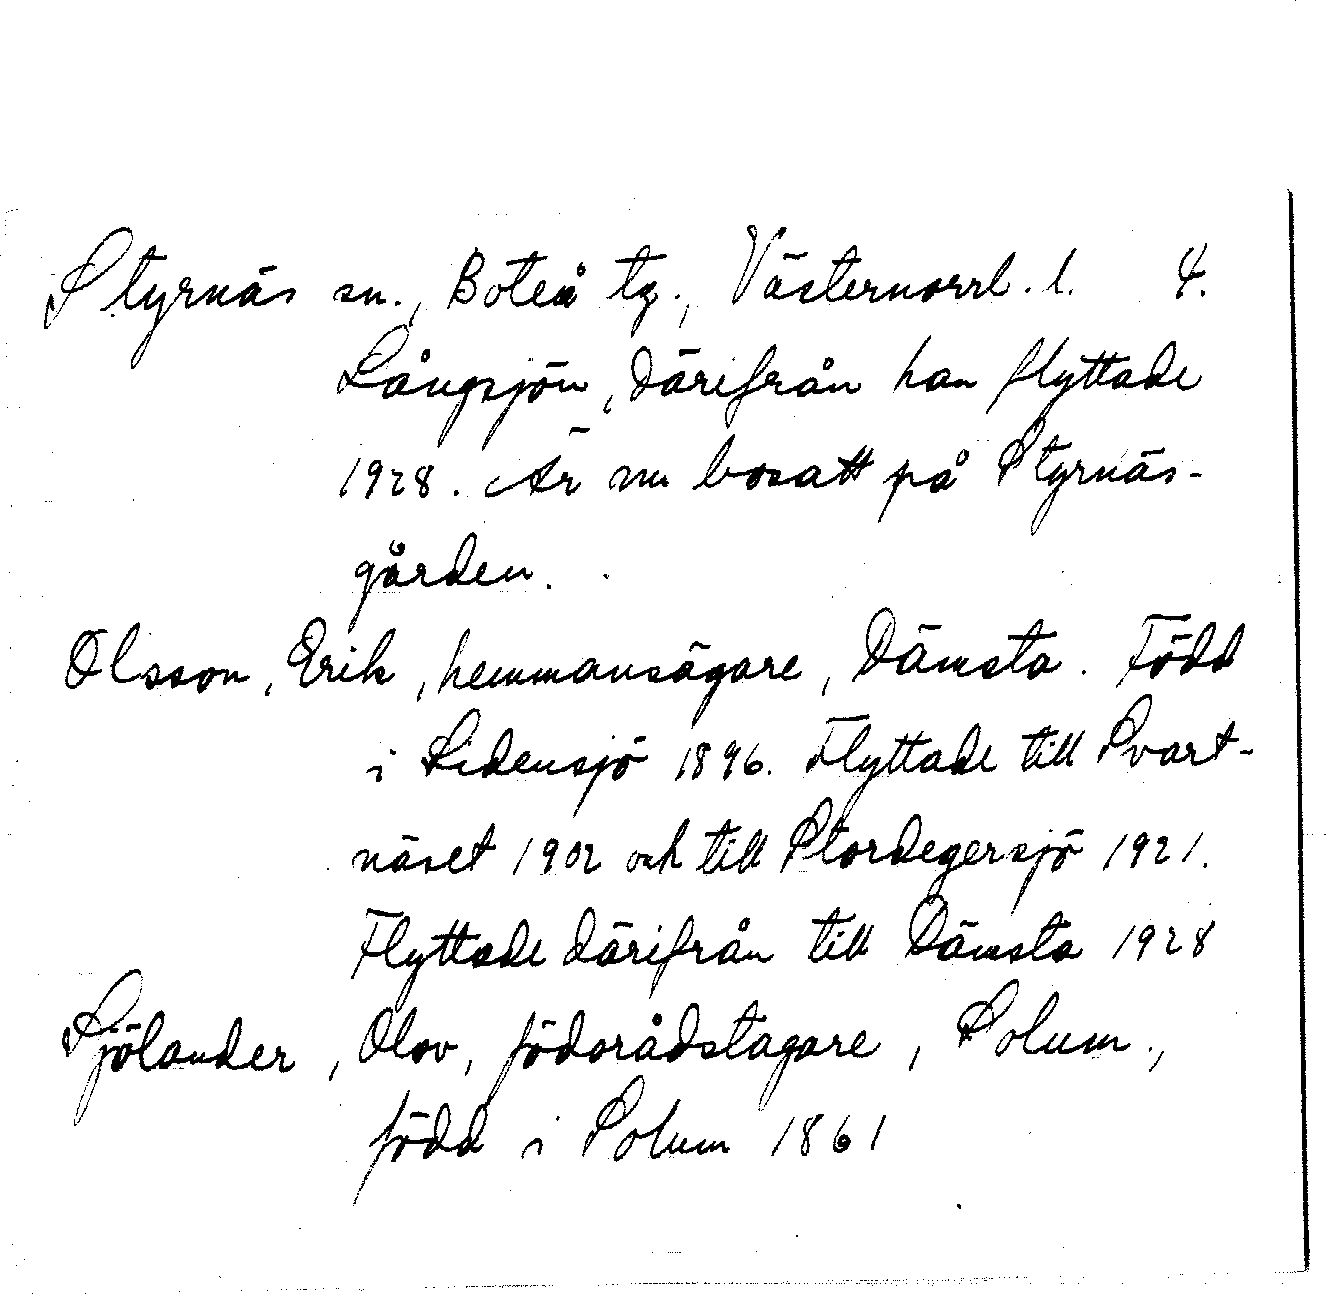 Styrnäs sn., Boteå tg., Västernorrl. l. 4.
Långsjön, därifrån han flyttade
1928. Är nu bosatt på Styrnäs-
gården.
Olsson, Erik, hemmansägare, Dämsta. Född
i Sidensjö 1896. Flyttade till Svart-
näset 1902 och till Stordegersjö 1921.
Flyttade därifrån till Dämsta 1928
Sjölander, Olov, födorådstagare, Solum.,
född i Solum 1861